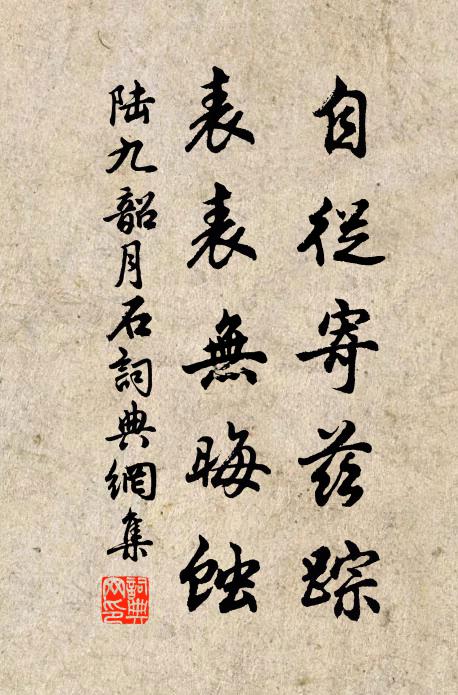 自從寄茲踪
表表無晦蝕
陸九韶月石詞典網集
詞典